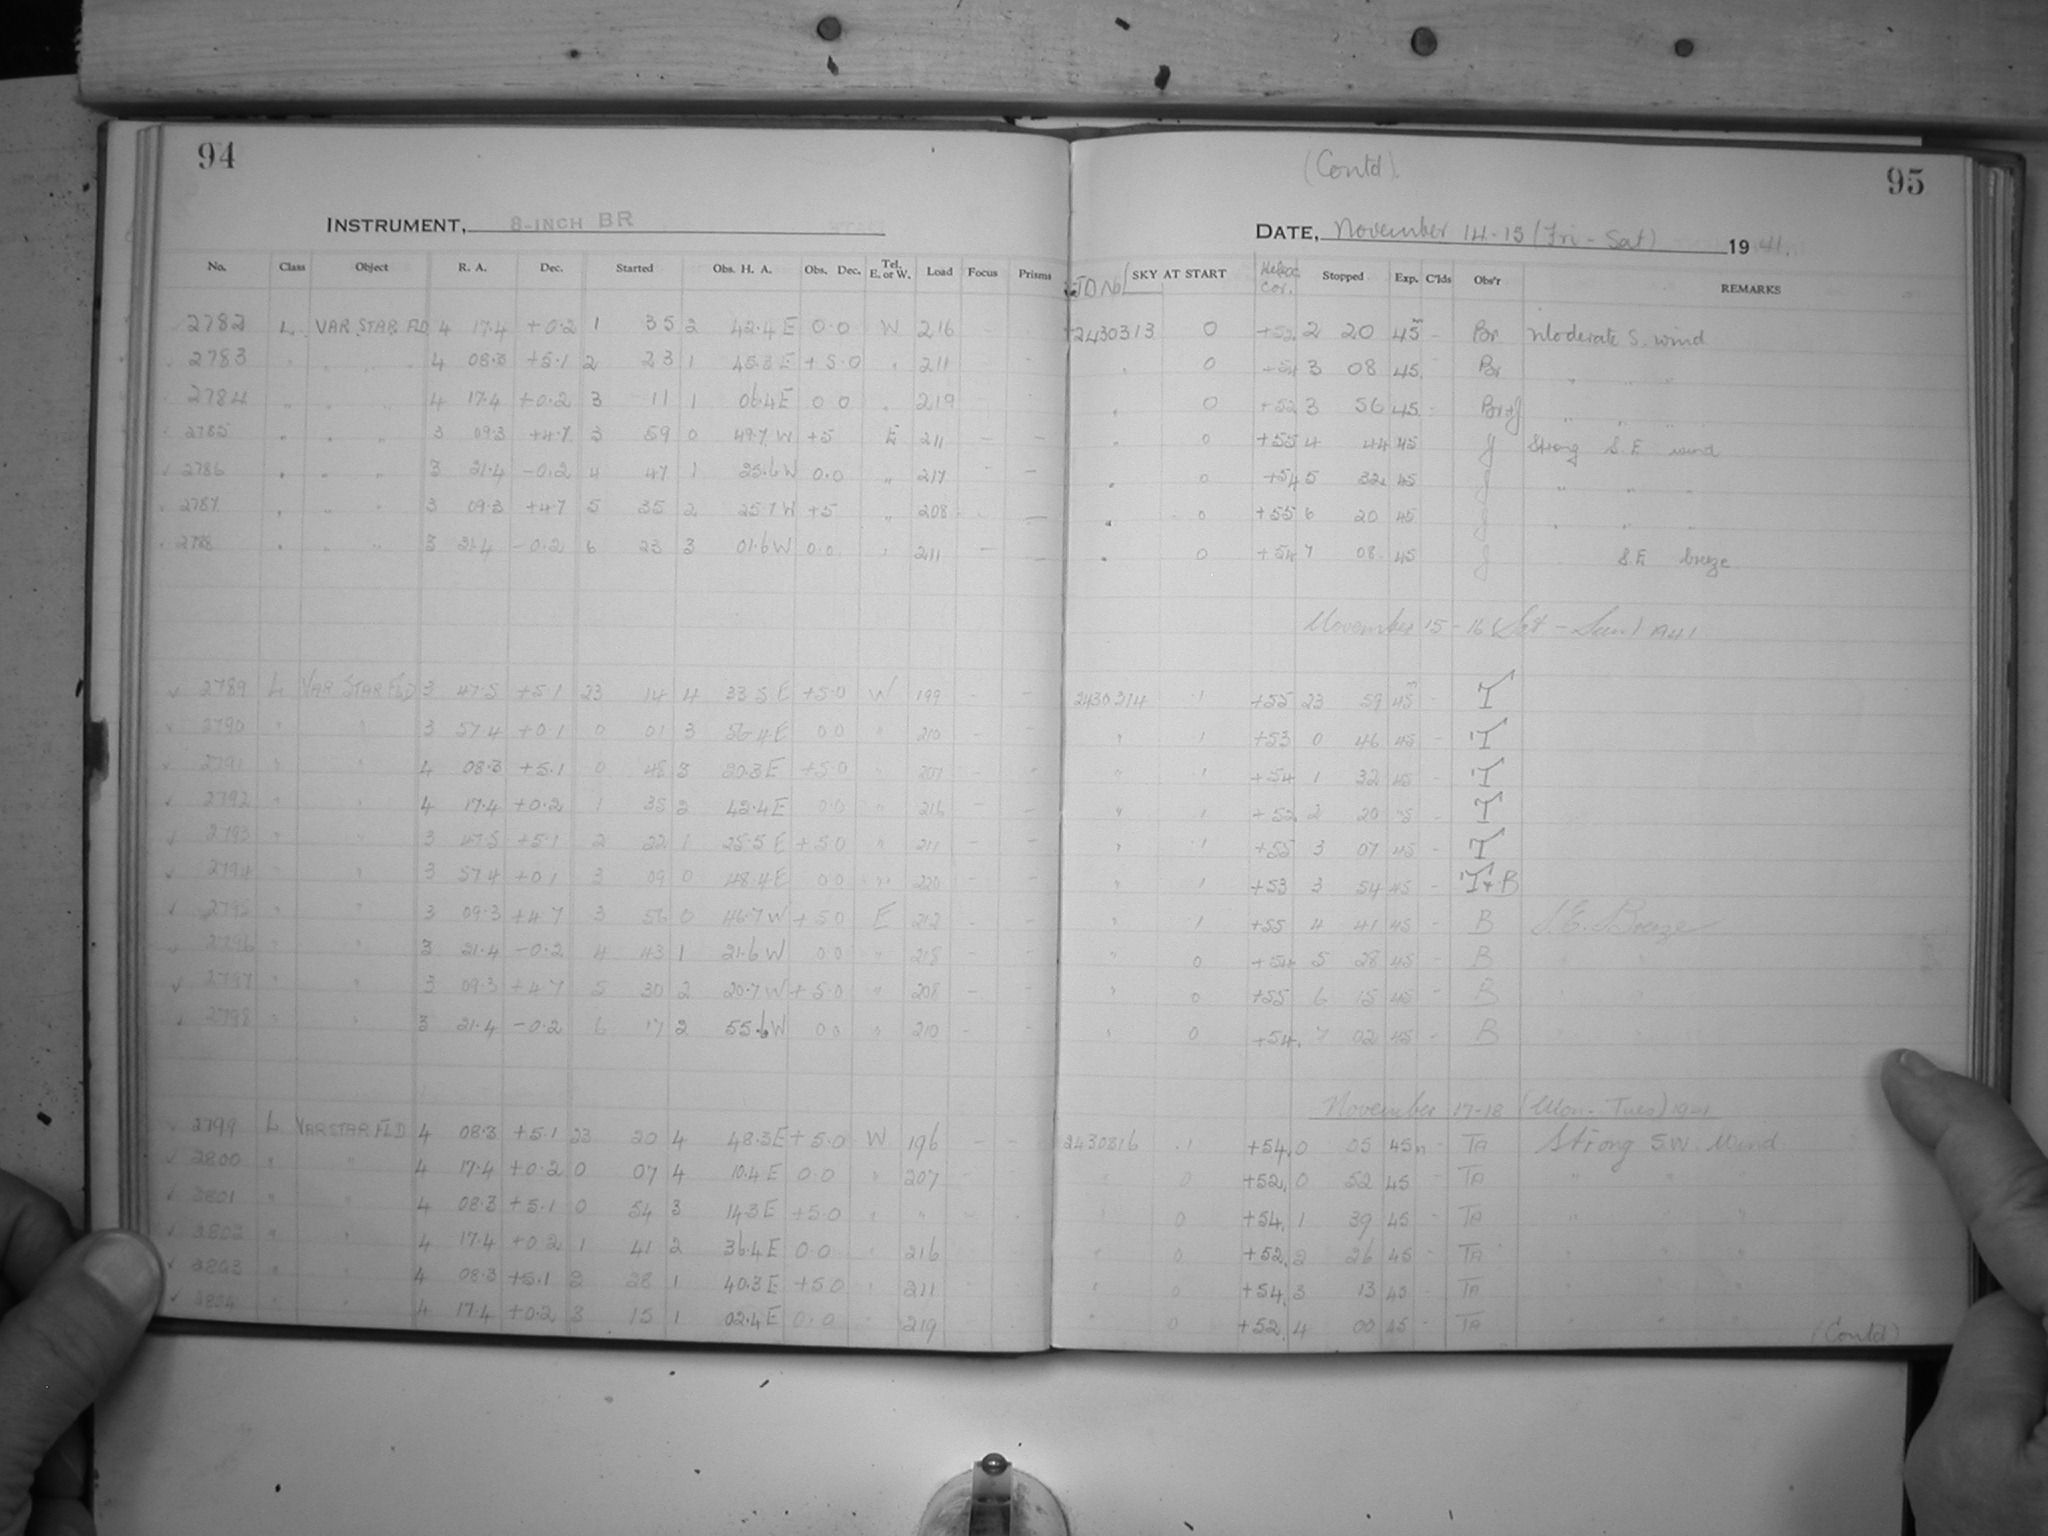 94
INSTRUMENT, 8-INCH BR
No. Class Object R. A. Dec. Started Obs. H. A. Obs. Dec. Tel. E. or W. Load Focus Prisms
2782 L VAR STAR FLD 4 17.4 +0.2 1 35 2 42.4 E 0.0 W 216 -
2783 " " " " 4 08.3 +5.1 2 23 1 45.3 E +5.0 " 211 - -
2784 " " " 4 17.4 +0.2 3 11 1 06.4 E 0 0 " 219
2785 " " " 3 09.3 +4.7 3 59 0 49.7 W +5 E 211 - -
2786 " " " 3 21.4 -0.2 4 47 1 25.6 W 0.0 " 217 - -
2787 " " " 3 09.3 +4.7 5 35 2 25.7 W +5 " 208 - -
2788 " " " 3 21.4 -0.2 6 23 3 01.6 W 0.0 " 211 - -
✓ 2789 L VAR STAR FLD 3 47.5 +5.1 23 14 4 33.5 E +5.0 W 199 - -
✓ 2790 " " 3 57.4 +0.1 0 01 3 56.4 E 0.0 " 210 - -
✓ 2791 " " 4 08.3 +5.1 0 48 3 20.3 E +5.0 " 207 - -
✓ 2792 " " 4 17.4 +0.2 1 35 2 42.4 E 0.0 " 216 - -
✓ 2793 " " 3 47.5 +5.1 2 22 1 25.5 E +5.0 " 211 - -
✓ 2794 " " 3 57.4 +0.1 3 09 0 48.4 E 0.0 " 220 - -
✓ 2795 " " 3 09.3 +4.7 3 56 0 46.7 W +5.0 E 212 - -
✓ 2796 " " 3 21.4 -0.2 4 43 1 21.6 W 0.0 " 218 - -
✓ 2797 " " 3 09.3 +4.7 5 30 2 20.7 W +5.0 " 208 - -
✓ 2798 " " 3 21.4 -0.2 6 17 2 55.6 W 0.0 " 210 - -
✓ 2799 L VAR STAR FLD 4 08.3 +5.1 23 20 4 48.3 E +5.0 W 196 - -
✓ 2800 " " 4 17.4 +0.2 0 07 4 10.4 E 0.0 " 207 - -
✓ 2801 " " 4 08.3 +5.1 0 54 3 14.3 E +5.0 " " - -
✓ 2802 " " 4 17.4 +0.2 1 41 2 36.4 E 0.0 " 216 - -
✓ 2803 " " 4 08.3 +5.1 2 28 1 40.3 E +5.0 " 211 - -
✓ 2804 " " 4 17.4 +0.2 3 15 1 02.4 E 0.0 " 219 - -
(Contd).
95
DATE, November 14-15 (Fri - Sat) 1941.
JD No SKY AT START Helioc Cor. Stopped Exp. C'lds Obs'r REMARKS
2430313 0 +52 2 20 45m - Br Moderate S. wind
" 0 +54 3 08 45 Br " " "
" 0 +52 3 56 45 - Br+J " " "
" 0 +55 4 44 45 J Strong S E wind
" 0 +54 5 32 45 J " " "
" 0 +55 6 20 45 J " " "
" 0 +54 7 08 45 J S E breeze
November 15-16 (Sat - Sun) 1941
2430314 1 +55 23 59 45m - T
" 1 +53 0 46 45 - T
" 1 +54 1 32 45 - T
" 1 +52 2 20 45 - T
" 1 +55 3 07 45 - T
" 1 +53 3 54 45 - T+B
" 1 +55 4 41 45 - B S.E. Breeze
" 0 +54 5 28 45 - B " "
" 0 +55 6 15 45 - B " "
" 0 +54 7 02 45 - B
November 17-18 (Mon - Tues) 1941
2430316 1 +54 0 05 45m - TA Strong SW. Wind
" 0 +52 0 52 45 - TA " " "
" 0 +54 1 39 45 - TA " " "
" 0 +52 2 26 45 - TA " " "
" 0 +54 3 13 45 - TA " " "
" 0 +52 4 00 45 - TA " " "
(Contd)